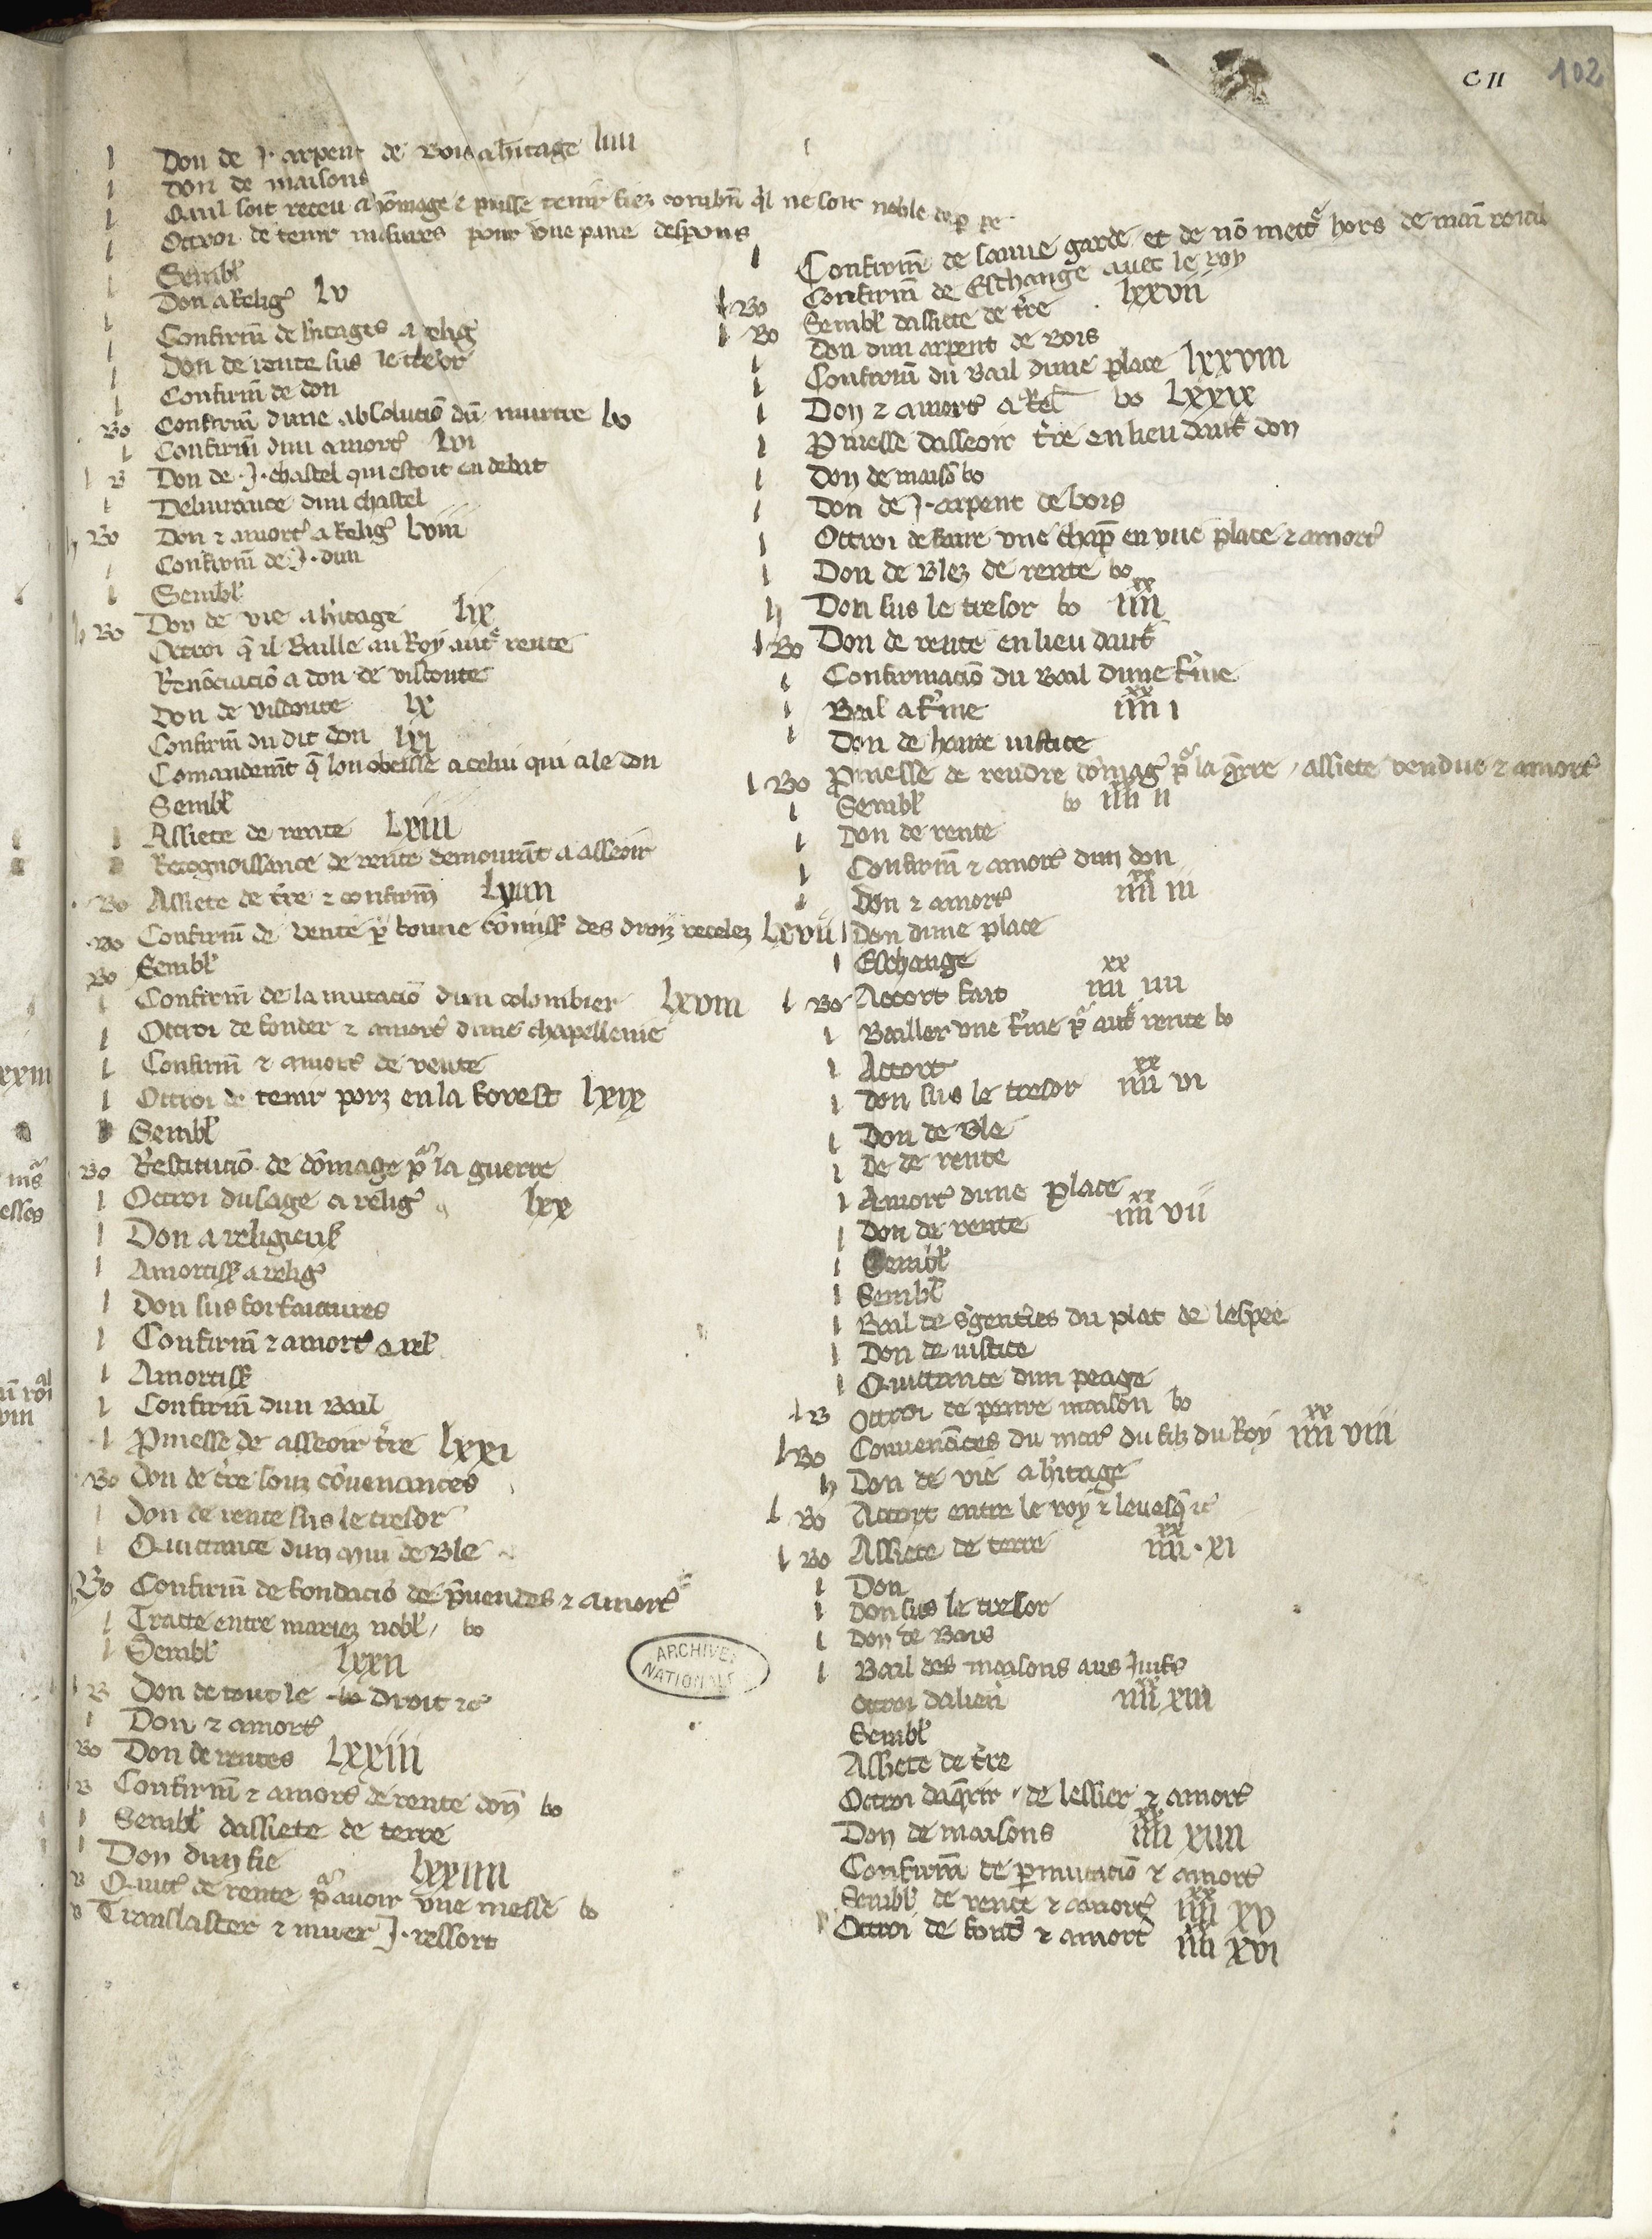 C II 102
l Don de .I. arpent de bois a h̃itage liiii
l Don de maisons
l Quil soit receu a hõmage et puisse tenir fiez combñ q̃l ne soit noble de p̱ pe
l Ottroi de tenir masures pour vne paire desperons
l Sembl̃
l Don a relig̃ lv
l Confirm̃ de h̃itages a relig̃
l Don de rente sus le tresor
l Confirm̃ de don
Bo Confirm̃ dune absoluciõ dũ murtre bo
l Confirm̃ dun amort̃ lvi
l B Don de .I. chastel qui estoit en debat
l Deliurance dun chastel
h Bo Don ⁊ amort̃ a relig̃ lviii
l Confirm̃ de .I. dun
l Sembl̃
h Bo Don de vie a h̃itage lix
Ottroi q̃ il baille au Roy autr̃ rente
Renõciaciõ a don de visconte
Don de visconte lx
Confirm̃ du dit don lxi
Comandem̃t q̃ lon obeisse a celui qui a le don
Sembl̃
l Assiete de rente lxiii
Recognoissance de rente demourãt a asseoir
Bo Assiete de t̃re ⁊ confirm̃ lxiiii
Bo Confirm̃ de vente p̱ bonne cõmiss̃ des droiz recelez lxvii
Bo Sembl̃
l Confirm̃ de la mutaciõ dun colombier lxviii
l Ottroi de fonder ⁊ amort̃ dune chapellenie
l Confirm̃ ⁊ amort̃ de vente
l Ottroi de tenir porz en la forest lxix
l Sembl̃
Bo Restituciõ de dõmage pͬ la guerre
l Ottroi dusage a relig̃ lxx
l Don a religieus̃
l Amortiss̃ a relig̃
l Don sus forfaitures
l Confirm̃ ⁊ amort̃ a rel̃
l Amortiss̃
l Confirm̃ dun bail
l P̃messe de asseoir t̃re lxxi
Bo Don de t̃re souz cõuenances
l Don de rente sus le tresor
l Quittance dun mui de ble
h Bo Confirm̃ de fondaciõ de p̃uendes ⁊ amort̃
l Traite entre mariez nobl̃ bo
l Sembl̃ lxxii
l B Don de tout le bo droit ⁊c̃
l Don ⁊ amort̃
Bo Don de rentes lxxiii
l B Confirm̃ ⁊ amort̃ de rente don̄ bo
l Sembl̃ dassiete de terre
l Don dun fie lxxiiii
B Quitt̃ de rente pͬ auoir vne messe bo
B Translater ⁊ muer .I. ressort
l Confirm̃ de sauue garde et de nõ mettr̃ hors de main roial
l Bo Confirm̃ de Eschange auec le roy
l Bo Sembl̃ dassiete de t̃re lxxvii
l Don dun arpent de bois
l Confirm̃ du bail dune place lxxviii
l Don ⁊ amort̃ a rel̃ bo lxxix
l P̃messe dasseoir t̃re en lieu dautr̃ don
l Don de maisõ bo
l Don de .I. arpent de bois
l Ottroi de faire vne chap̃ en vne place ⁊ amort̃
l Don de blez de rente bo
h Don sus le tresor bo iiiiˣˣ
l Bo Don de rente en lieu dautr̃
l Confirmaciõ du bail dune f̃me
l Bail a f̃me iiiiˣˣ i
l Don de haute iustice
l Bo P̃messe de rendre dõmag̃ pͬ la g̃rre, assiete vendue ⁊ amort̃
l Sembl̃ bo iiiiˣˣ ii
l Don de rente
l Confirm̃ ⁊ amort̃ dun don
l Don ⁊ amort̃ iiiiˣˣ iii
l Don dune place
l Eschange
l Bo Accort fait iiiiˣˣ iiii
l Bailler vne f̃me pͬ autr̃ rente bo
l Accort
l Don sus le tresor iiiiˣˣ vi
l Don de ble
l De de rente
l Amort̃ dune place
l Don de rente iiiiˣˣ vii
l Sembl̃
l Sembl̃
l Bail de s̃genteries du plat de lespee
l Don de iustice
l Quittance dun peage
l B Ottroi de poure maison bo
l Bo Conuenãces du mar̃ du filz du Roy iiiiˣˣ viii
h Don de vie a h̃itage
l Bo Accort entre le roy ⁊ leuesq̃ ⁊c̃
l Bo Assiete de terre iiiiˣˣ xi
l Don
l Don sus le tresor
l Don de bois
l Bail des maisons aus Juifs
Ottroi dalien̄ iiiiˣˣ xiii
Sembl̃
Assiete de t̃re
Ottroi daq̃rir, de lessier ⁊ amort̃
Don de maisons iiiiˣˣ xiiii
Confirm̃ de p̱mutaciõ ⁊ amort̃
Sembl̃ de rente ⁊ amort̃ iiiiˣˣ xv
Ottroi de fond̃ ⁊ amort̃ iiiiˣˣ xvi
ARCHIVES NATIONALES